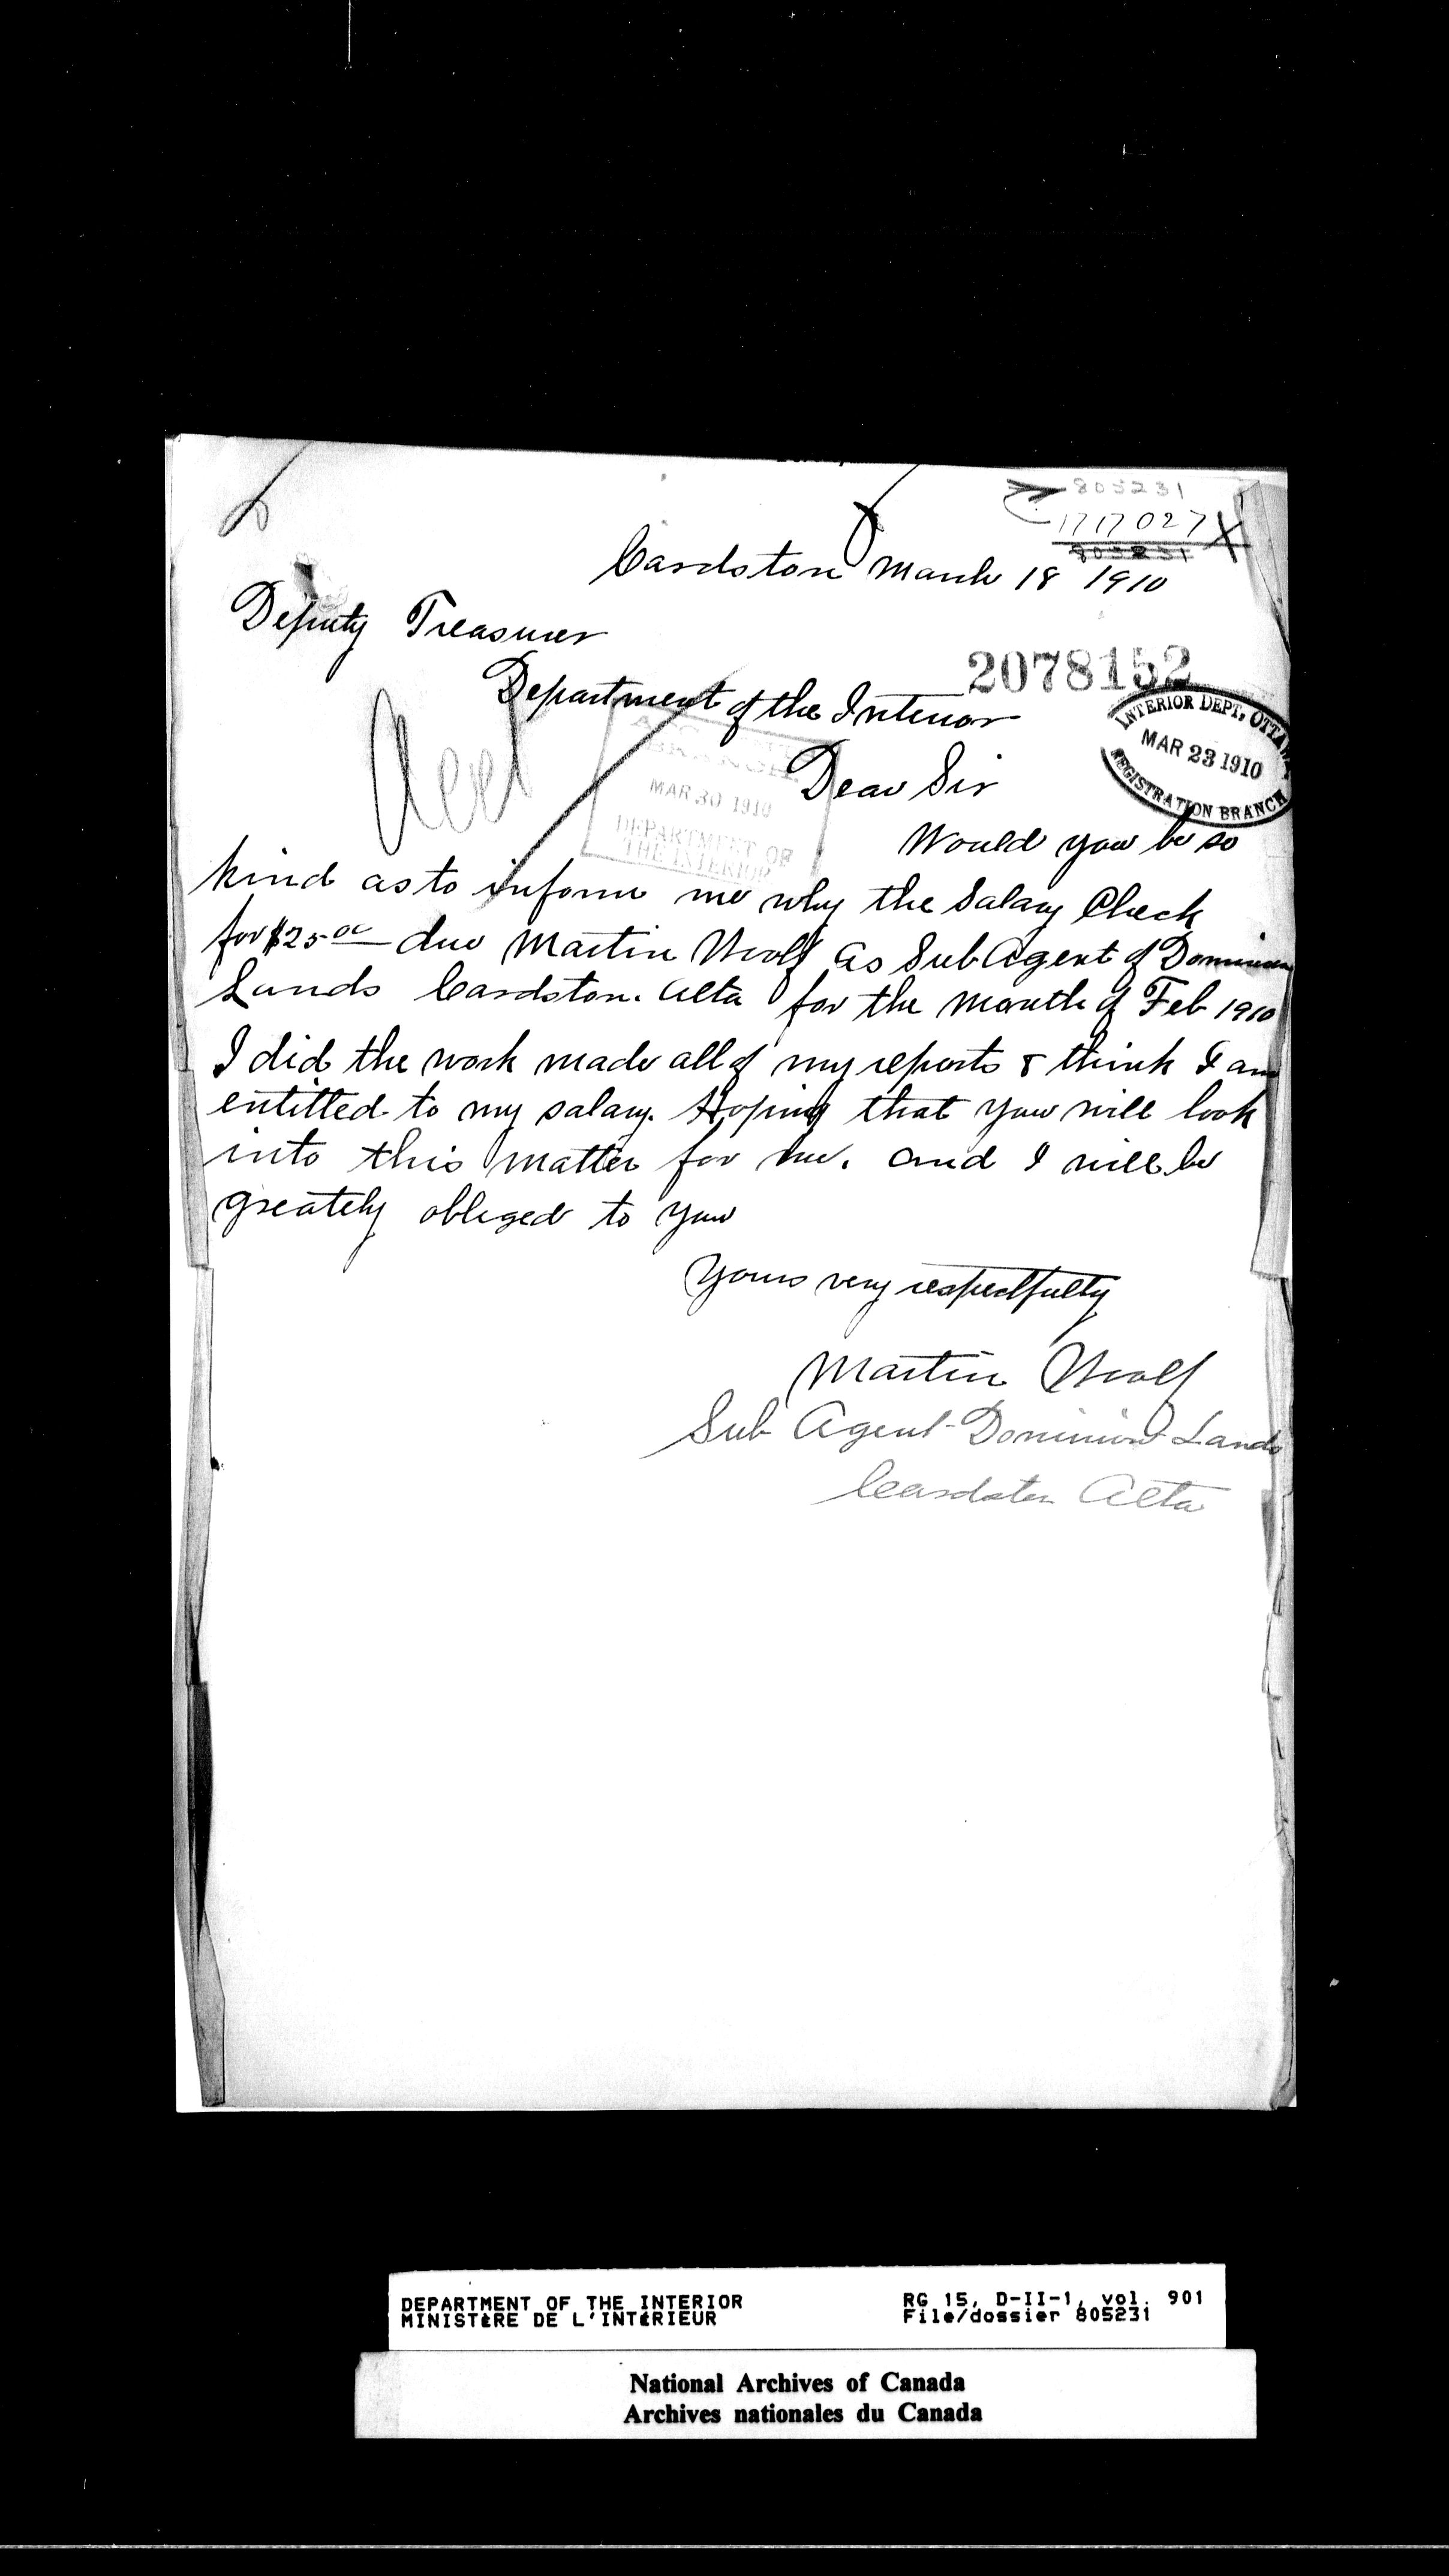 805231
1717027
805231
Cardston March 18 1910
Deputy Treasurer
Department of the Interior
2078152
INTERIOR DEPT, OTTAWA
MAR 23 1910
REGISTRATION BRANCH
BRANCH
MAR 30 1910
DEPARTMENT OF
THE INTERIOR
Dear Sir
Would you be so
kind as to inform me why the Salary Check
for $25 00 due Martin Woolf as Sub Agent of Dominion
Lands Cardston. Alta for the month of Feb 1910
I did the work made all of my reports & think I am
entitled to my salary. Hoping that you will look
into this matter for me. and I will be
greately obliged to you
Yours very respectfully
Martin Woolf
Sub Agent Dominion Lands
Cardston Alta
DEPARTMENT OF THE INTERIOR
MINISTÈRE DE L'INTÉRIEUR
RG 15, D-II-1, vol. 901
File/dossier 805231
National Archives of Canada
Archives nationales du Canada